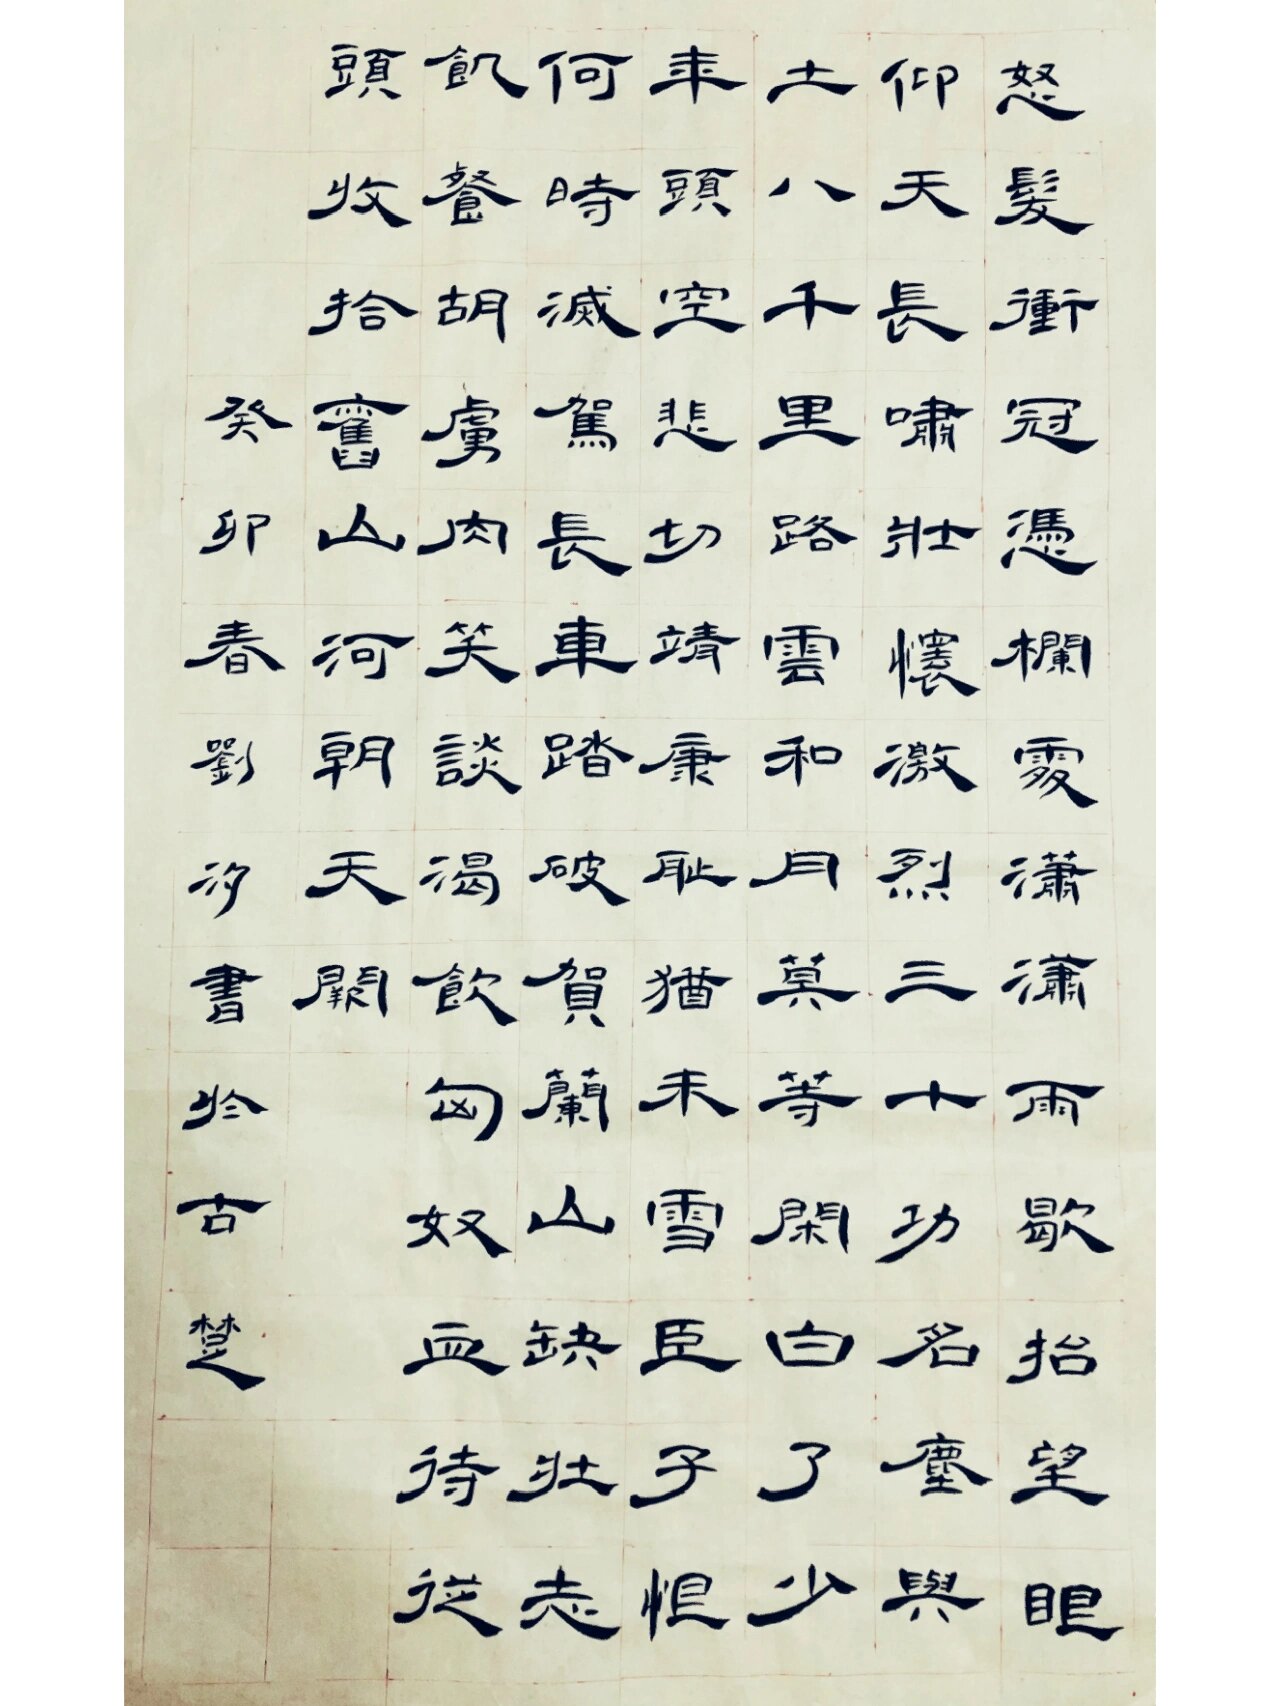 怒髮衝冠憑欄處瀟瀟雨歇抬望眼
仰天長嘯壯懷激烈三十功名塵與
土八千里路雲和月莫等閑白了少
年頭空悲切靖康恥猶未雪臣子恨
何時滅駕長車踏破賀蘭山缺壯志
飢餐胡虜肉笑談渴飲匈奴血待從
頭收拾舊山河朝天闕
癸卯春劉汐書於古楚